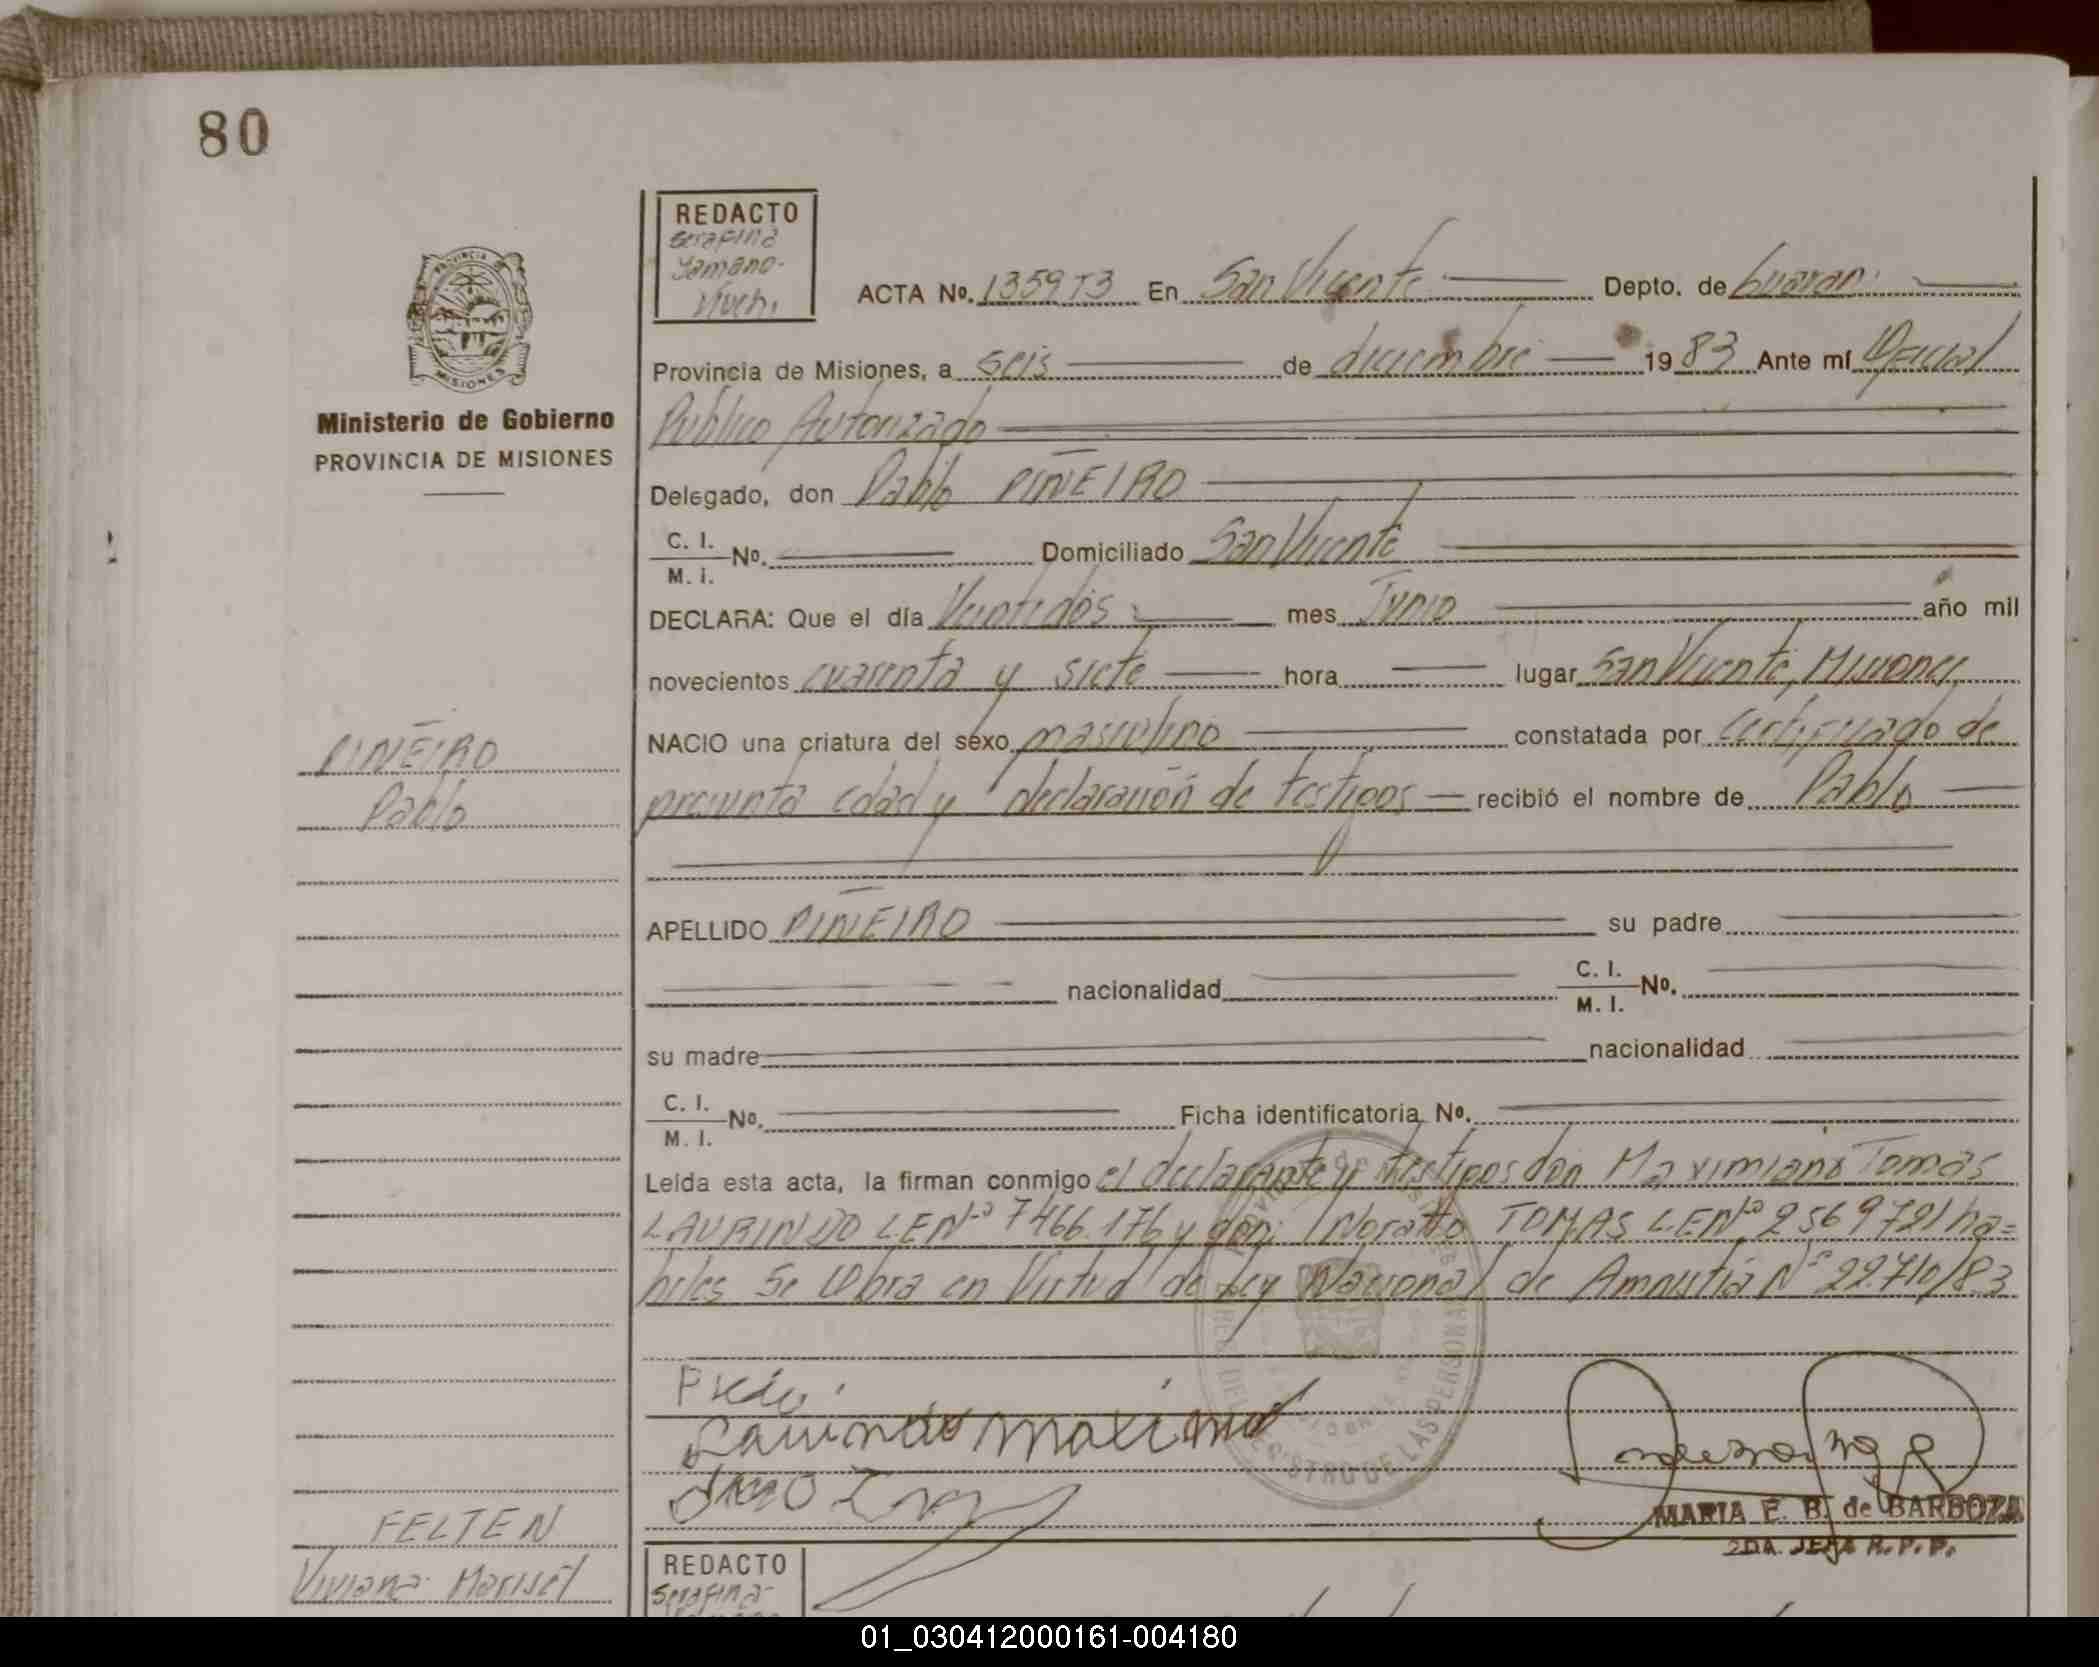 80
REDACTO
Serafina
PROVINCIA
MISIONES
ACTA Nº. 1359T3 En San Vicente Depto. de Guaraní
Provincia de Misiones, a seis de diciembre 1983 Ante mí Oficial
Público Autorizado
Ministerio de Gobierno
PROVINCIA DE MISIONES
Delegado, don Pablo PIÑEIRO
C. I.
M. I. Nº. Domiciliado San Vicente
DECLARA: Que el día Veintidós mes Junio año mil
novecientos cuarenta y siete hora lugar San Vicente, Misiones
PIÑEIRO
Pablo
NACIO una criatura del sexo masculino constatada por Certificado de
presunta edad y declaración de testigos recibió el nombre de Pablo
APELLIDO PIÑEIRO su padre
nacionalidad C. I.
M. I. Nº.
su madre nacionalidad
C. I.
M. I. Nº. Ficha identificatoria Nº.
Leída esta acta, la firman conmigo el declarante y testigos don Maximiano Tomás
LAURINDO LE Nº 7466.176 y don TOMAS LE Nº 2569721 há=
biles Se Obra en Virtud de Ley Nacional de Amnistía Nº 22.710/83
REGISTRO DE LAS PERSONAS
MARIA E. B. de BARBOZA
2DA. JEFA R.P.P.
FELTEN
Viviana Marisel
REDACTO
Serafina
01_030412000161-004180